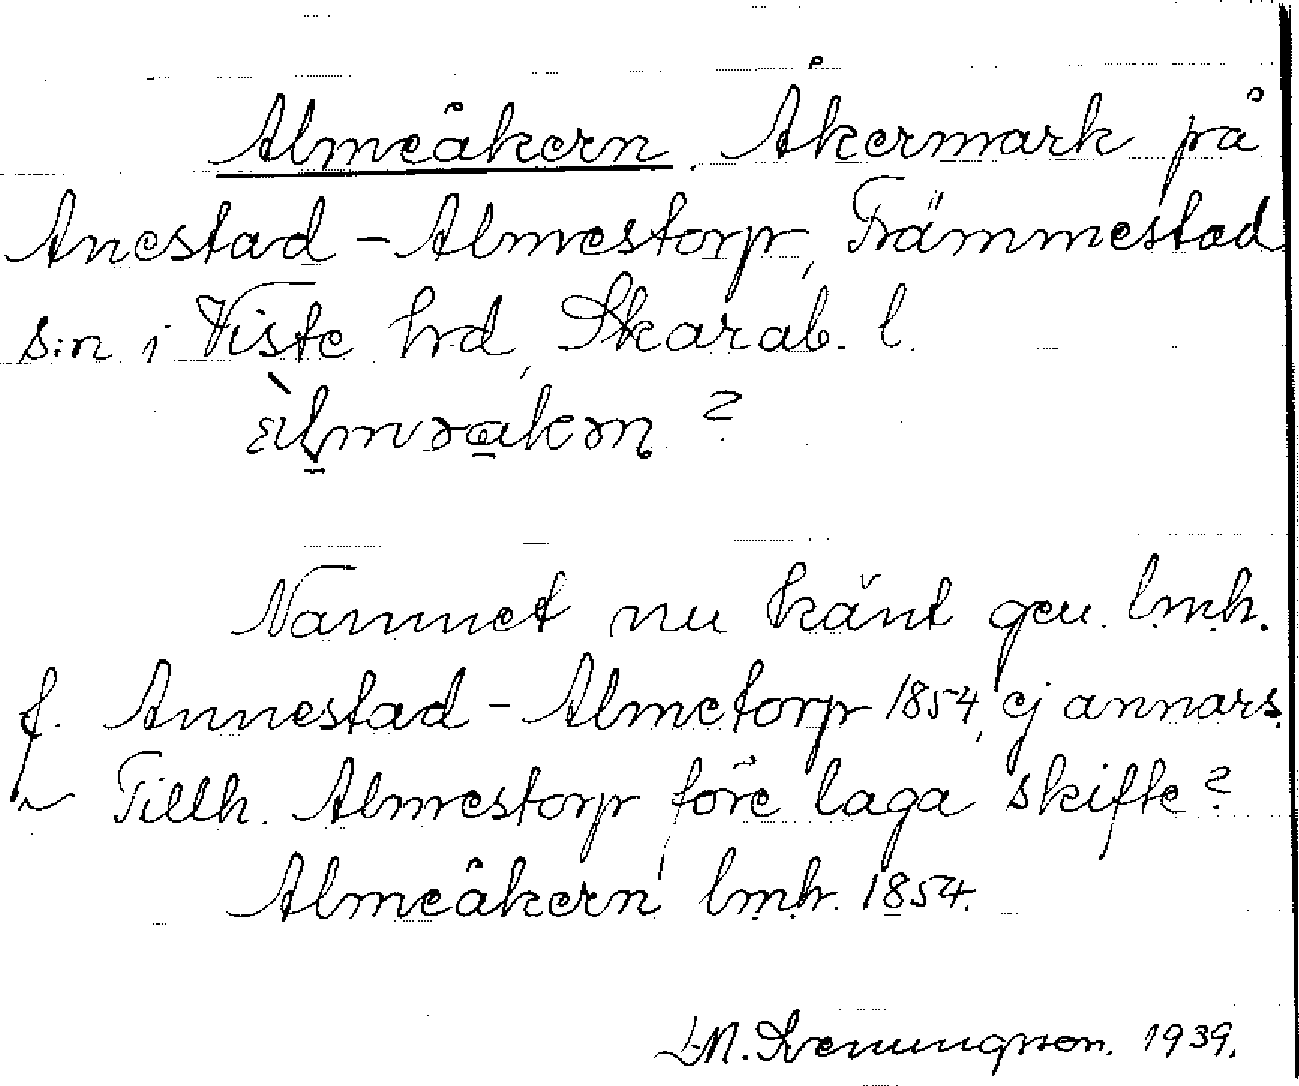 Almeåkern. Åkermark på
Anestad - Almestorp, Främmestad
s:n i Viste hd, Skarab. l.
?
Namnet nu känt gen. lmh.
f. Annestad - Almetorp 1854, ej annars.
~ Tillh. Almestorp före laga skifte?
Almeåkern lmh. 1854.
1939.